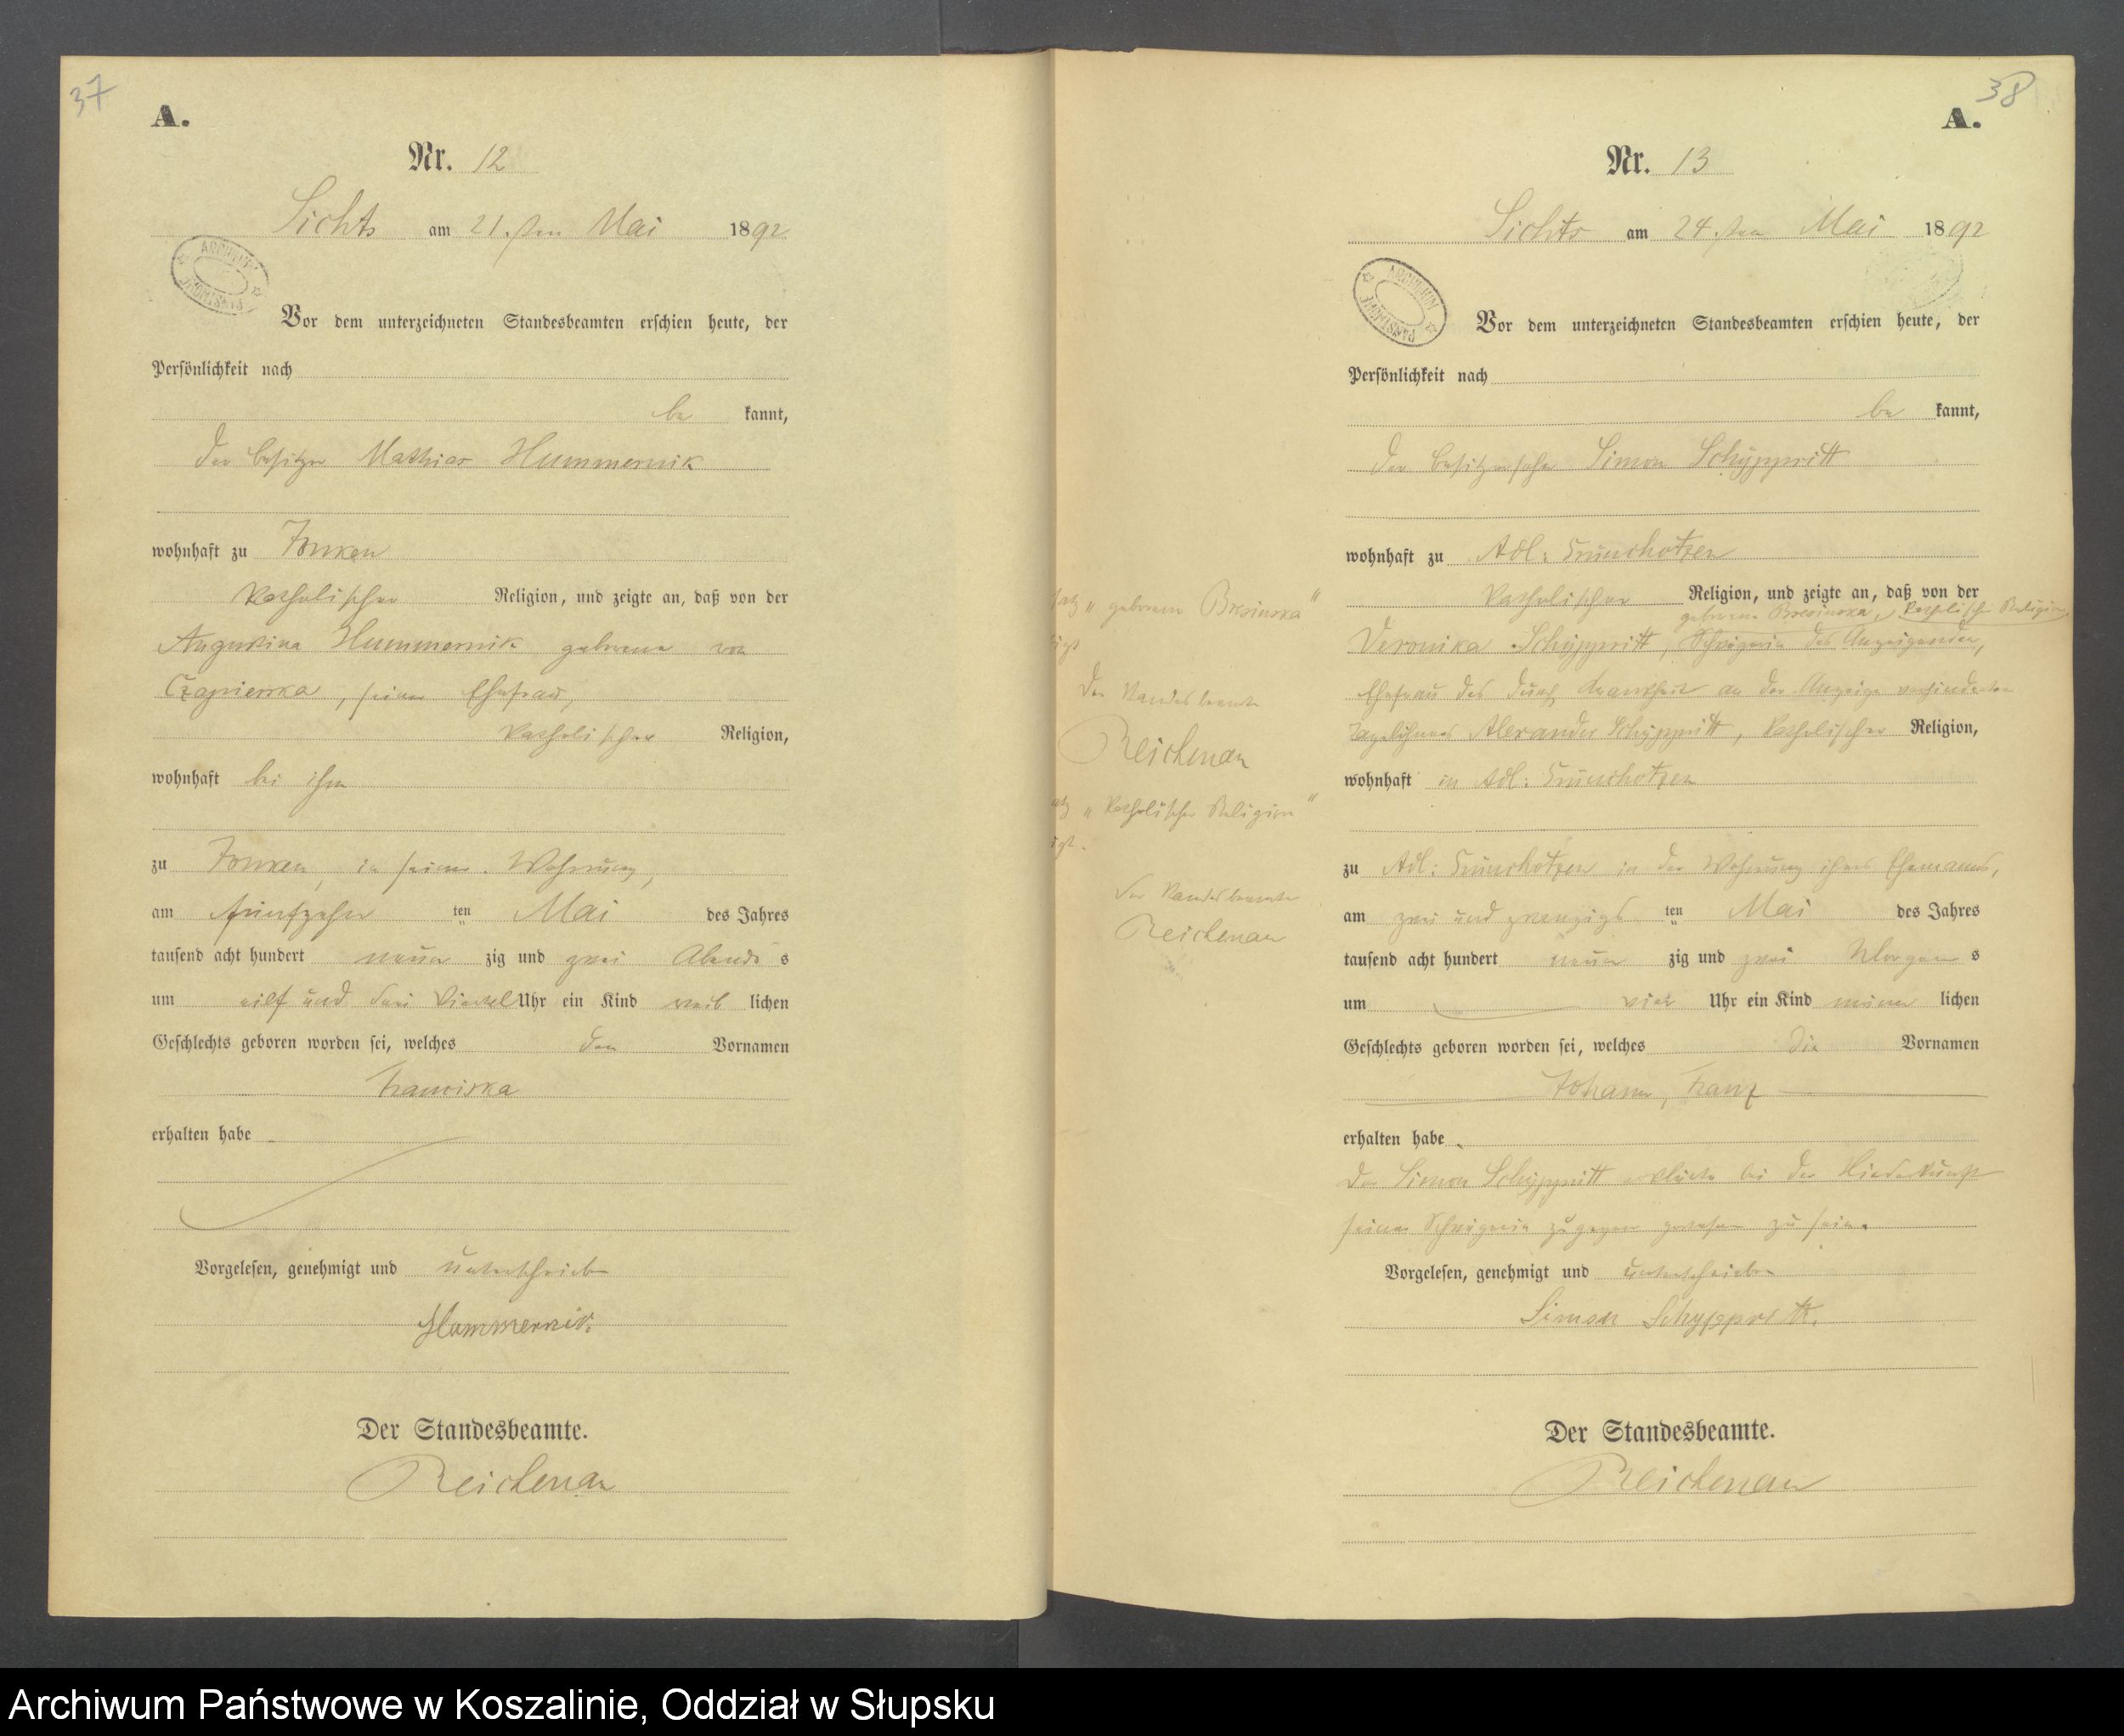 37
A.
Nr. 12
Sichts am 21. ten Mai 1892
ARCHIWUM
Vor dem unterzeichneten Standesbeamten erschien heute, der
Persönlichkeit nach
be kannt,
der Besitzer Mathias Hummernik
wohnhaft zu
katholischer Religion, und zeigte an, daß von der
Augustina Hummernik geborene von
Czapiewska, seiner Ehefrau,
katholischer Religion,
wohnhaft bei ihm
zu in seiner Wohnung,
am fünfzehn ten Mai des Jahres
tausend acht hundert neun zig und zwei Abends
um eilf und drei Viertel Uhr ein Kind weib lichen
Geschlechts geboren worden sei, welches den Vornamen
Franciska
erhalten habe
Vorgelesen, genehmigt und unterschrieben
Hummernik.
Der Standesbeamte.
Reichenau
38
A.
Nr. 13
Sichts am 24. ten Mai 1892
ARCHIWUM PAŃSTWOWE
Vor dem unterzeichneten Standesbeamten erschien heute, der
Persönlichkeit nach
be kannt,
der Besitzersohn Simon Schÿppritt
wohnhaft zu Adl:
katholischer Religion, und zeigte an, daß von der
geborene Bresinska, katholischer Religion,
Veronika Schÿppritt, Schwägerin des Anzeigenden,
Ehefrau des durch Krankheit an der Anzeige verhinderten
Tagelöhners Alexander Schÿppritt, katholischer Religion,
wohnhaft in Adl:
zu Adl: in der Wohnung ihres Ehemanns,
am zwei und zwanzigs ten Mai des Jahres
tausend acht hundert neun zig und zwei Morgens
um vier Uhr ein Kind männ lichen
Geschlechts geboren worden sei, welches die Vornamen
Johann, Franz
erhalten habe.
Der Simon Schÿppritt erklärte bei der Niederkunft
seiner Schwägerin zugegen gewesen zu sein.
Vorgelesen, genehmigt und unterschrieben
Simon Schyppritt.
Der Standesbeamte.
Reichenau
satz „geborene Bresinska"
igt
Der Standesbeamte
Reichenau
atz „katholischer Religion"
igt.
Der Standesbeamte
Reichenau
Archiwum Państwowe w Koszalinie, Oddział w Słupsku